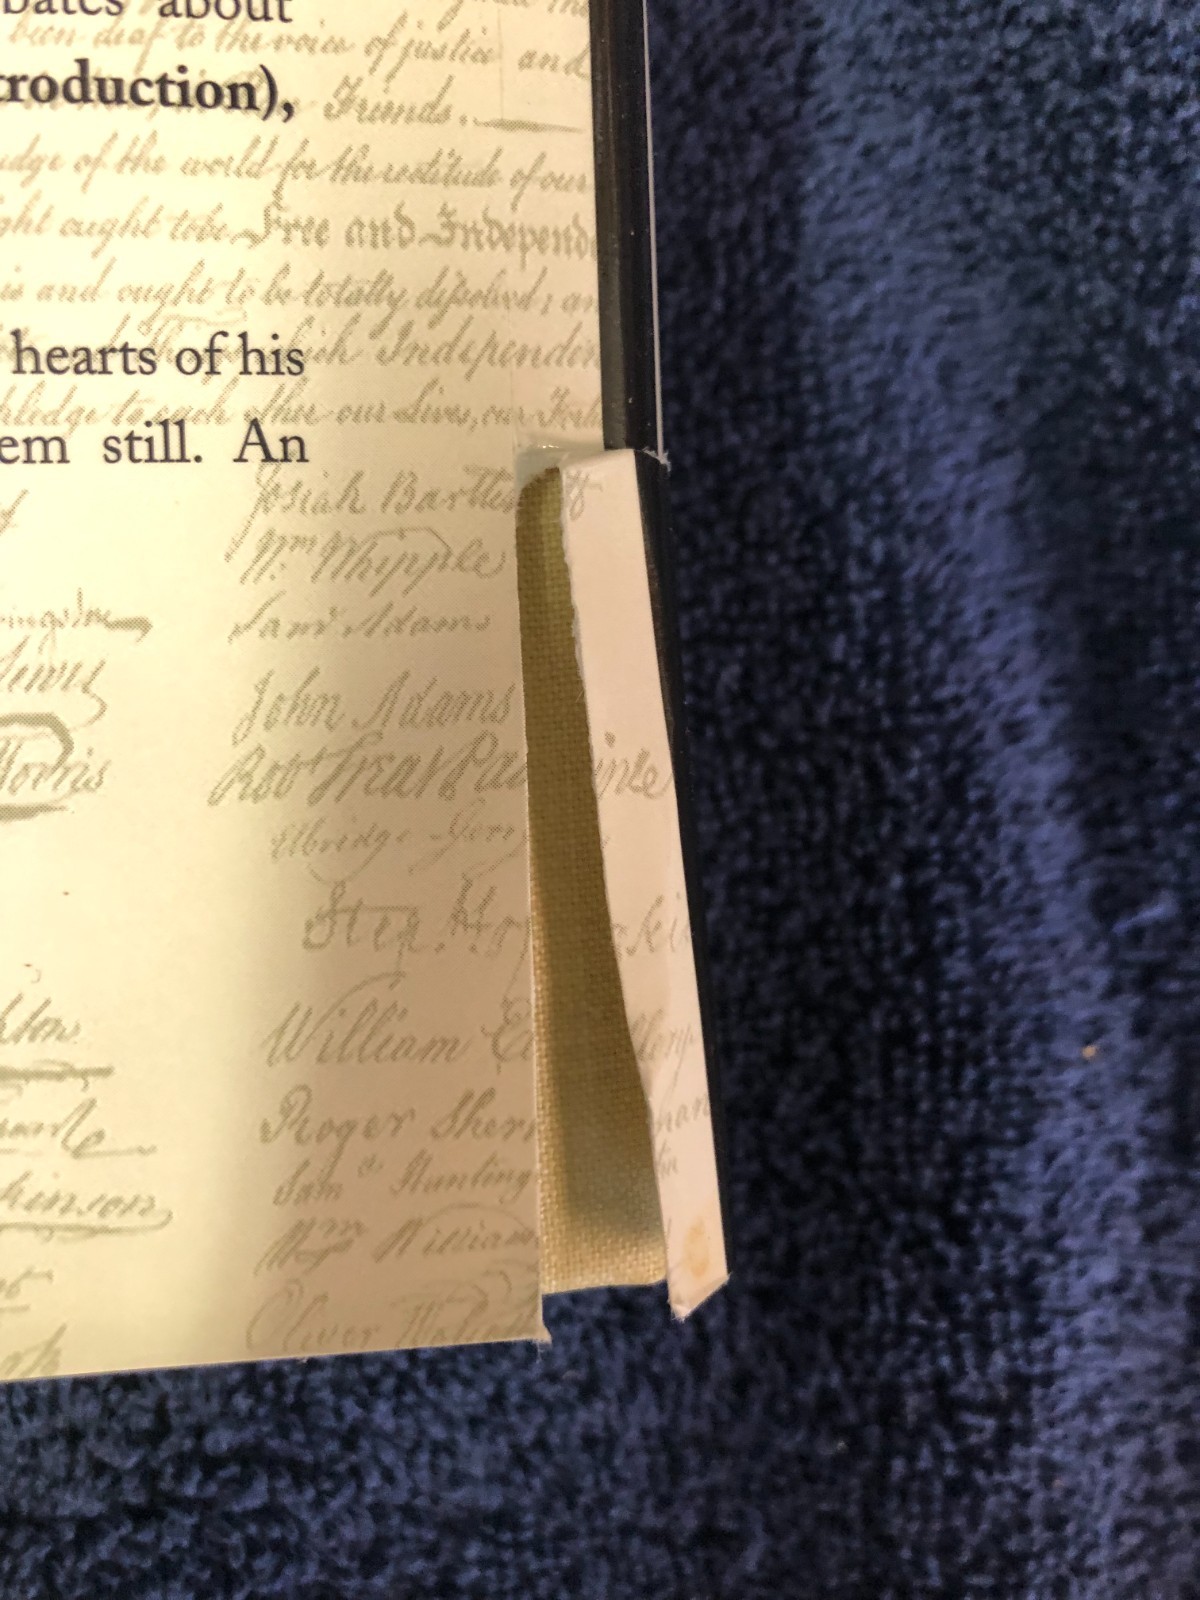 bates about
been deaf to the voice of justice and
troduction), Friends.
udge of the world for the rectitude of our
ght ought to be Free and Independ
is and ought to be totally dissolved; an
hearts of his
Independen
pledge to each other our Lives, our Fort
em still. An
Josiah Bartlett
Wm Whipple
Saml Adams
Lewis
John Adams
Morris
Robt Treat Paine
Elbridge Gerry
Step. Hopkin
William Ellery
Roger Sherman
Saml Hunting
kinson
Wm William
Oliver Wolcott